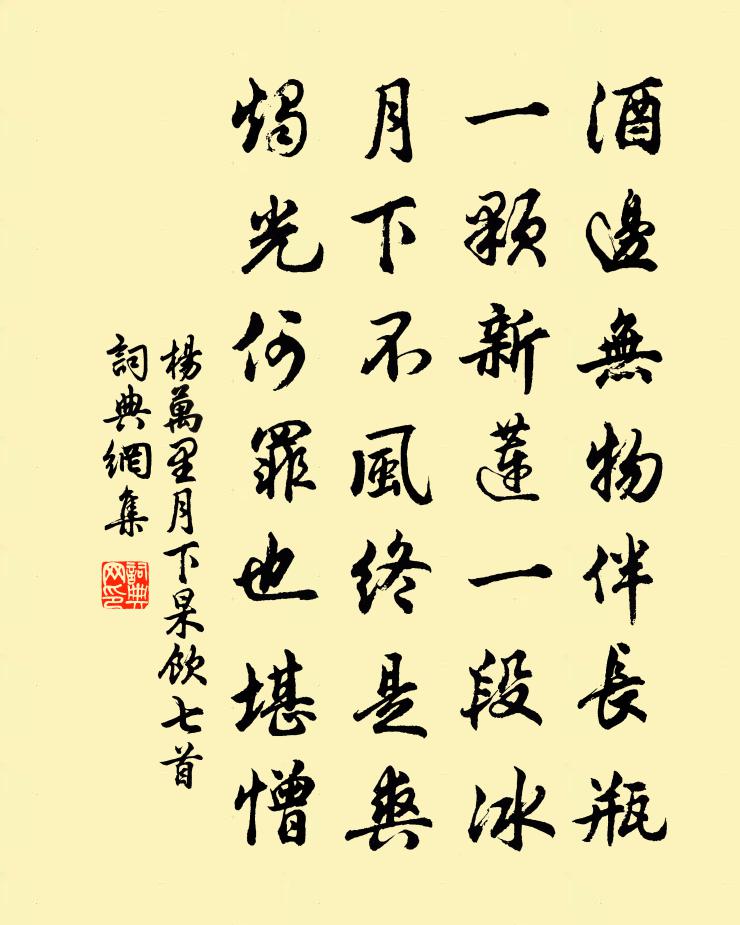 酒邊無物伴長瓶
一顆新蓮一段冰
月下不風終是爽
燭光何罪也堪憎
楊萬里月下杲飲七首
詞典網集
詞典网印